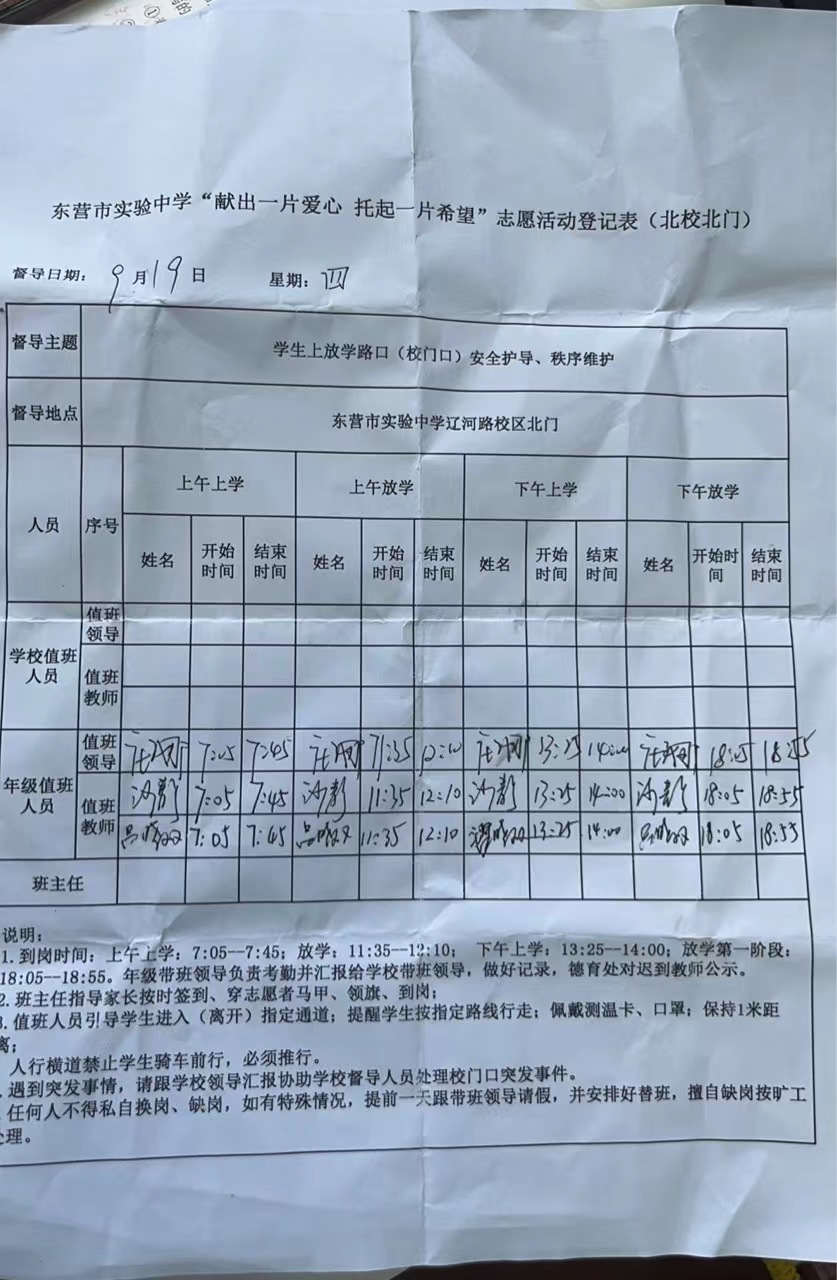 东营市实验中学“献出一片爱心 托起一片希望”志愿活动登记表（北校北门）
督导日期： 9月19日 星期：四
督导主题 学生上放学路口（校门口）安全护导、秩序维护
督导地点 东营市实验中学辽河路校区北门
人员 序号 上午上学 上午放学 下午上学 下午放学
姓名 开始时间 结束时间 姓名 开始时间 结束时间 姓名 开始时间 结束时间 姓名 开始时间 结束时间
学校值班人员 值班领导
值班教师
年级值班人员 值班领导 7:05 7:45 11:35 12:10 13:25 14:00 18:05 18:55
值班教师 7:05 7:45 11:35 12:10 13:25 14:00 18:05 18:55
7:05 7:45 11:35 12:10 13:25 14:00 18:05 18:55
班主任
说明：
1.到岗时间：上午上学：7:05--7:45；放学：11:35--12:10； 下午上学：13:25--14:00；放学第一阶段：
18:05--18:55。年级带班领导负责考勤并汇报给学校带班领导，做好记录，德育处对迟到教师公示。
2.班主任指导家长按时签到、穿志愿者马甲、领旗、到岗；
3.值班人员引导学生进入（离开）指定通道；提醒学生按指定路线行走；佩戴测温卡、口罩；保持1米距
离；
人行横道禁止学生骑车前行，必须推行。
遇到突发事情，请跟学校领导汇报协助学校督导人员处理校门口突发事件。
任何人不得私自换岗、缺岗，如有特殊情况，提前一天跟带班领导请假，并安排好替班，擅自缺岗按旷工
处理。